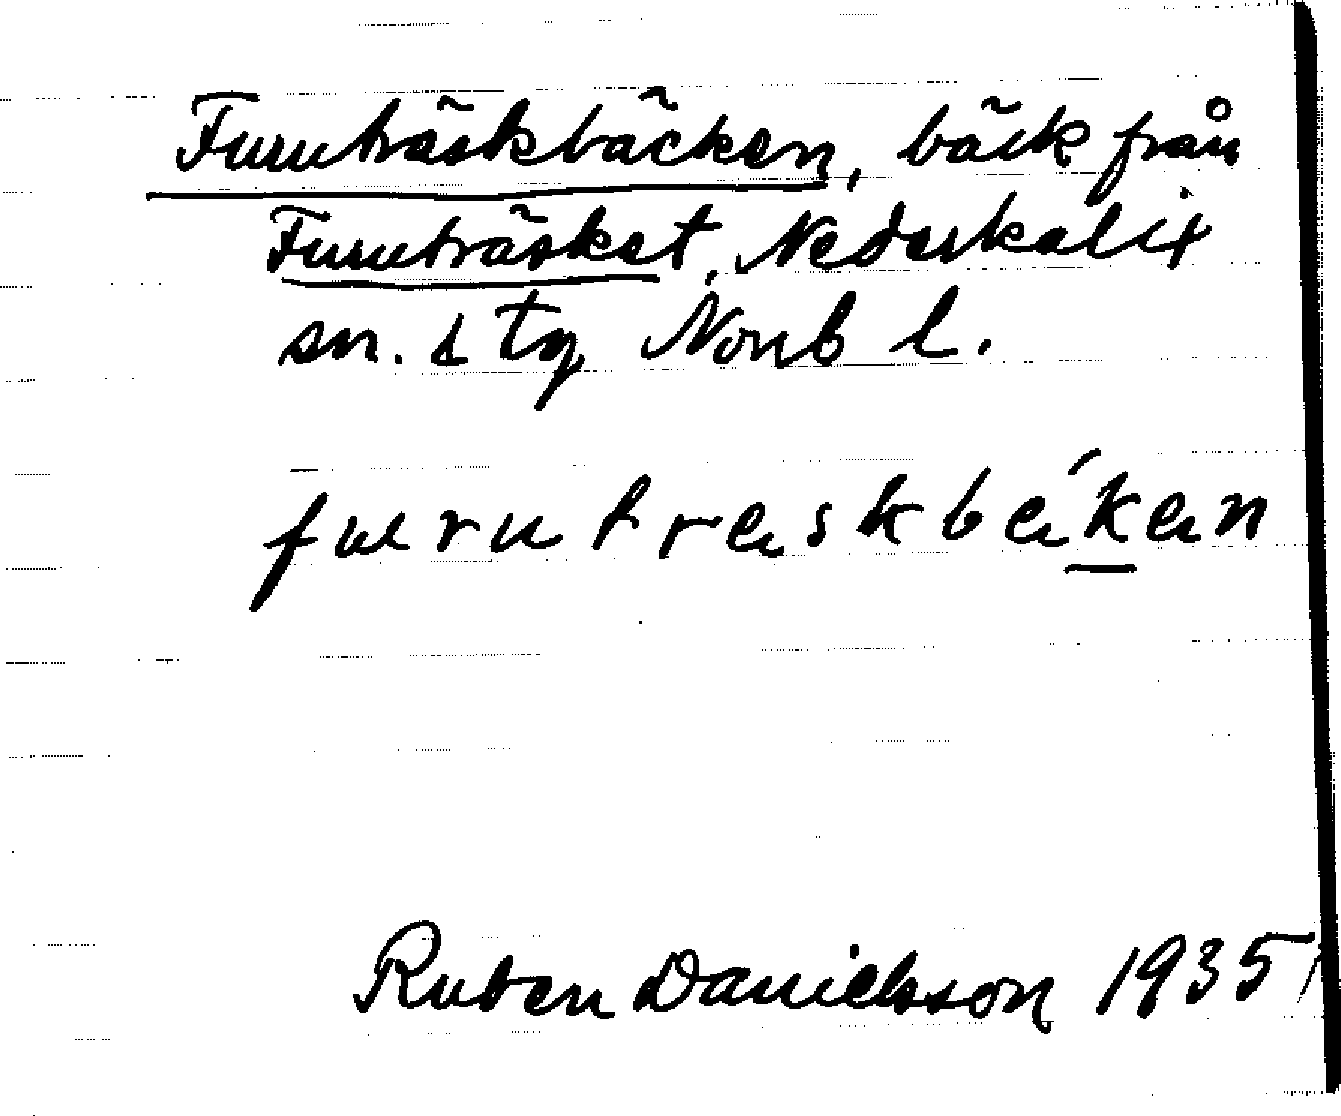 Furuträskbäcken, bäck från
Furuträsket, Nederkalix
sn. o tg Norrb l.
furutreskbéken
Ruben Danielsson 1935